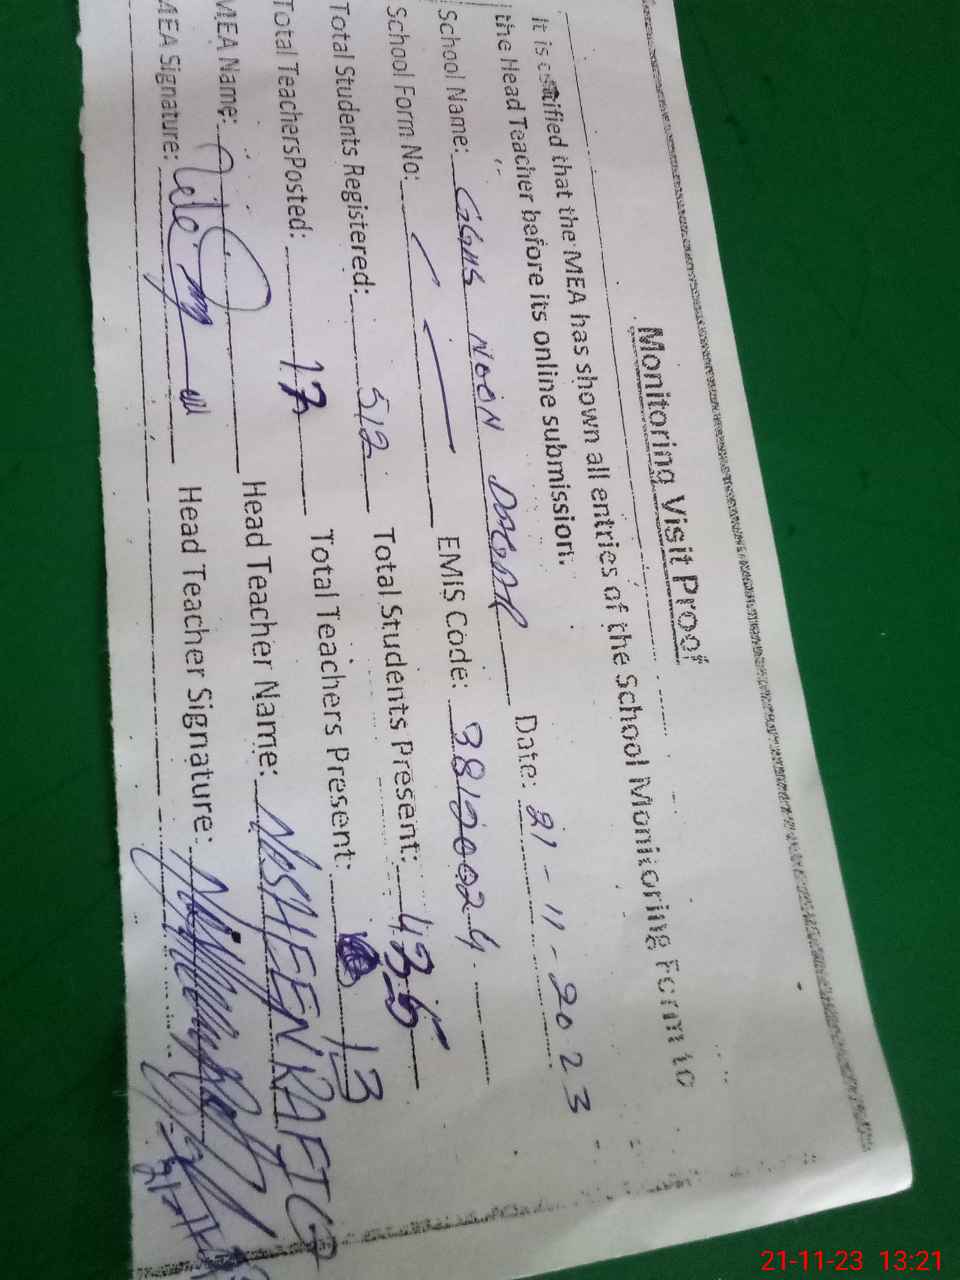 Monitoring Visit Proof
It is certified that the MEA has shown all entries of the School Monitoring Form to
the Head Teacher before its online submission.
School Name: GGHS NOON DAGAR Date: 21-11-2023
School Form No: EMIS Code: 38120024
Total Students Registered: 512 Total Students Present: 435
Total Teachers Posted: 17 Total Teachers Present: 13
MEA Name: Head Teacher Name: NOSHEEN RAFIG
MEA Signature: Head Teacher Signature:
21-11-23 13:21